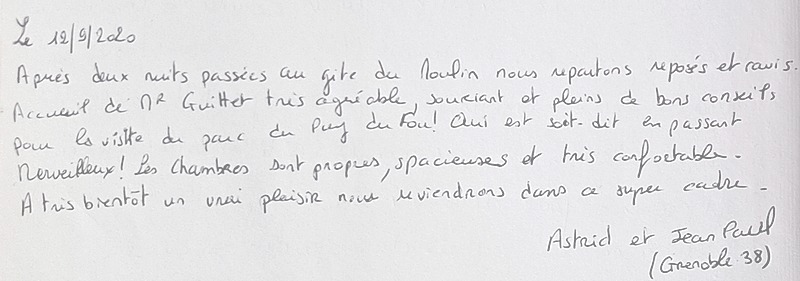 Le 12/9/2020
Après deux nuits passées au gite du Moulin nous repartons reposés et ravis.
Accueuil de Mr Guittet très agréable, souriant et pleins de bons conseils
pour la visite du parc du Puy du Fou! Qui est soit-dit en passant
Merveilleux! Les chambres sont propres, spacieuses et très confortable.
A très bientôt un vrai plaisir nous reviendrons dans ce super cadre.
Astrid et Jean Paul
(Grenoble 38)